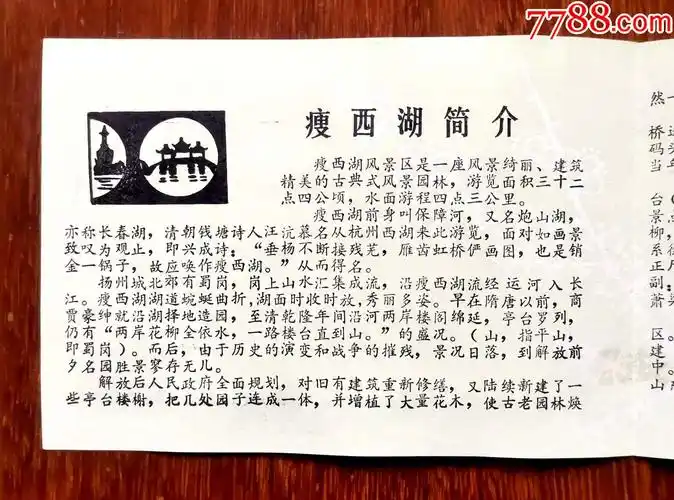 7788.com
瘦西湖简介
瘦西湖风景区是一座风景绮丽、建筑
精美的古典式风景园林，游览面积三十二
点四公顷，水面游程四点三公里。
瘦西湖前身叫保障河，又名炮山湖，
亦称长春湖，清朝钱塘诗人汪沆慕名从杭州西湖来此游览，面对如画景
致叹为观止，即兴成诗：“垂杨不断接残芜，雁齿虹桥俨画图，也是销
金一锅子，故应唤作瘦西湖。”从而得名。
扬州城北郊有蜀岗，岗上山水汇集成流，沿瘦西湖流经运河入长
江。瘦西湖湖道蜿蜒曲折，湖面时收时放，秀丽多姿。早在隋唐以前，商
贾豪绅就沿湖择地造园，至清乾隆年间沿河两岸楼阁绵延，亭台罗列，
仍有“两岸花柳全依水，一路楼台直到山。”的盛况。（山，指平山，
即蜀岗）。而后，由于历史的演变和战争的摧残，景况日落，到解放前
夕名园胜景寥存无几。
解放后人民政府全面规划，对旧有建筑重新修缮，又陆续新建了一
些亭台楼榭，把几处园子连成一体，并增植了大量花木，使古老园林焕
然一
桥
码头
当
台（
景点
柳，
系
正
副
萧
区。
建
中。
山